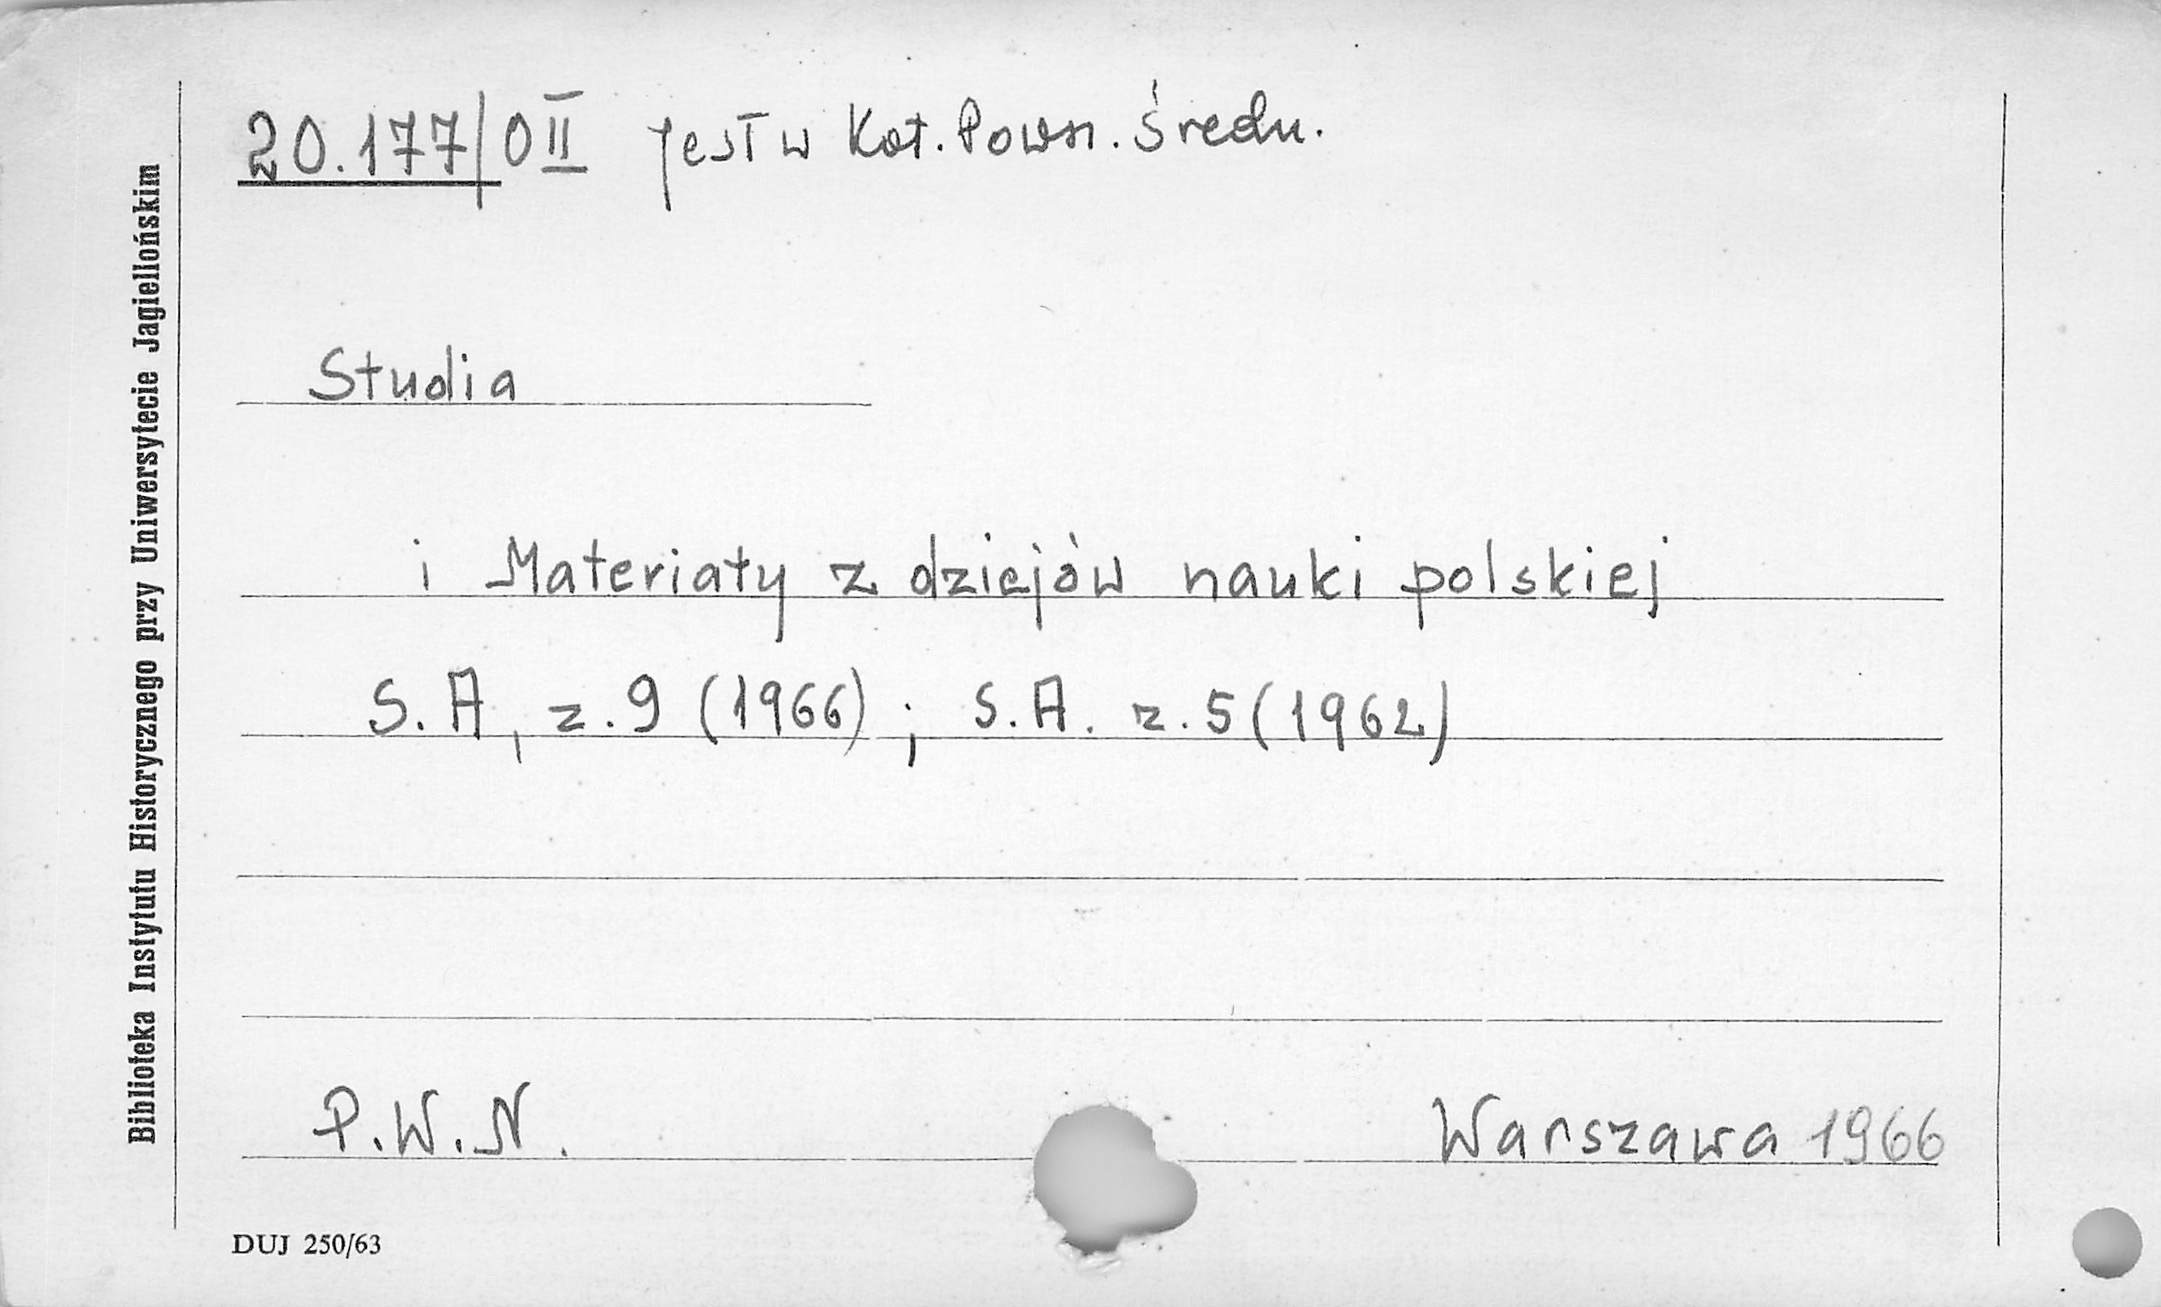 20.177/0 II jest w Kat. Powsz. średn.
Studia
i Materiały z dziejów nauki polskiej
S. A, z. 9 (1966) ; S. A. z. 5 (1962)
P. W. N. Warszawa 1966
DUJ 250/63
Biblioteka Instytutu Historycznego przy Uniwersytecie Jagiellońskim